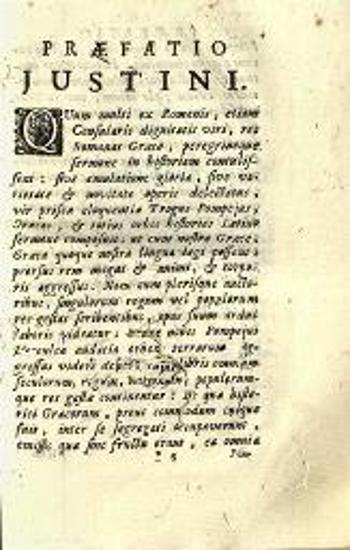 PRÆFATIO
JUSTINI.
QUum multi ex Romanis, etiam
Consularis dignitatis viri, res
Romanas Græco, peregrinoque
sermone in historiam contulis-
sent: sive æmulatione gloriæ, sive va-
rietate & novitate operis delectatus,
vir priscæ eloquentiæ Trogus Pompejus,
Græcas, & totius orbis historias Latino
sermone composuit: ut cum nostra Græce,
Græca quoque nostra lingua legi possent:
prorsus rem magni & animi, & corpo-
ris aggressus. Nam cum plerisque aucto-
ribus, singulorum regum vel populorum
res gestas scribentibus, opus suum ardui
laboris videatur: nonne nobis Pompejus
Herculea audacia orbem terrarum ag-
gressus videri debet, cujus libris omnium
seculorum, regum, nationum, populorum-
que res gestæ continentur? Et quæ histo-
rici Græcorum, prout commodum cuique
fuit, inter se segregati occupaverunt,
omissis quæ sine fructu erant, ea omnia